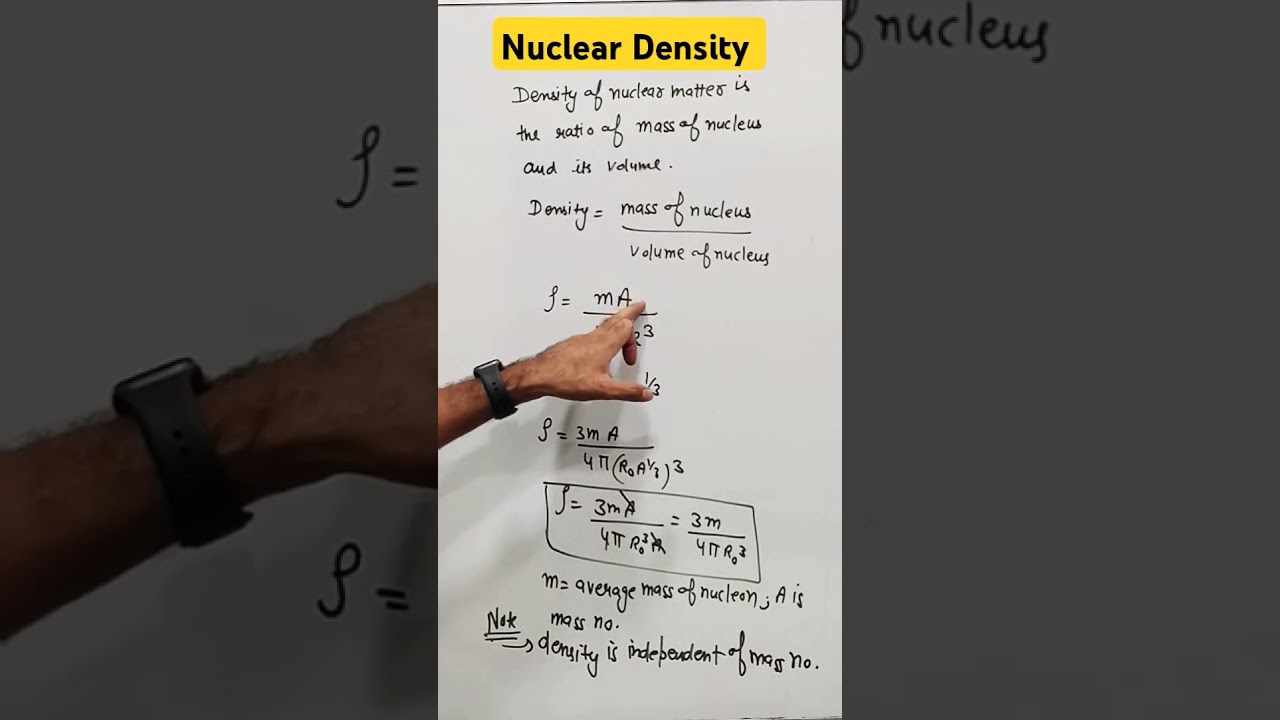 Nuclear Density
Density of nuclear matter is
the ratio of mass of nucleus
and its volume.
Density = mass of nucleus
volume of nucleus
ρ = mA
R³
1/3
ρ = 3mA
4π(R₀A^1/3)³
ρ = 3mA = 3m
4πR₀³A 4πR₀³
m = average mass of nucleon; A is
mass no.
Note → density is independent of mass no.
of nucleus
ρ =
ρ =